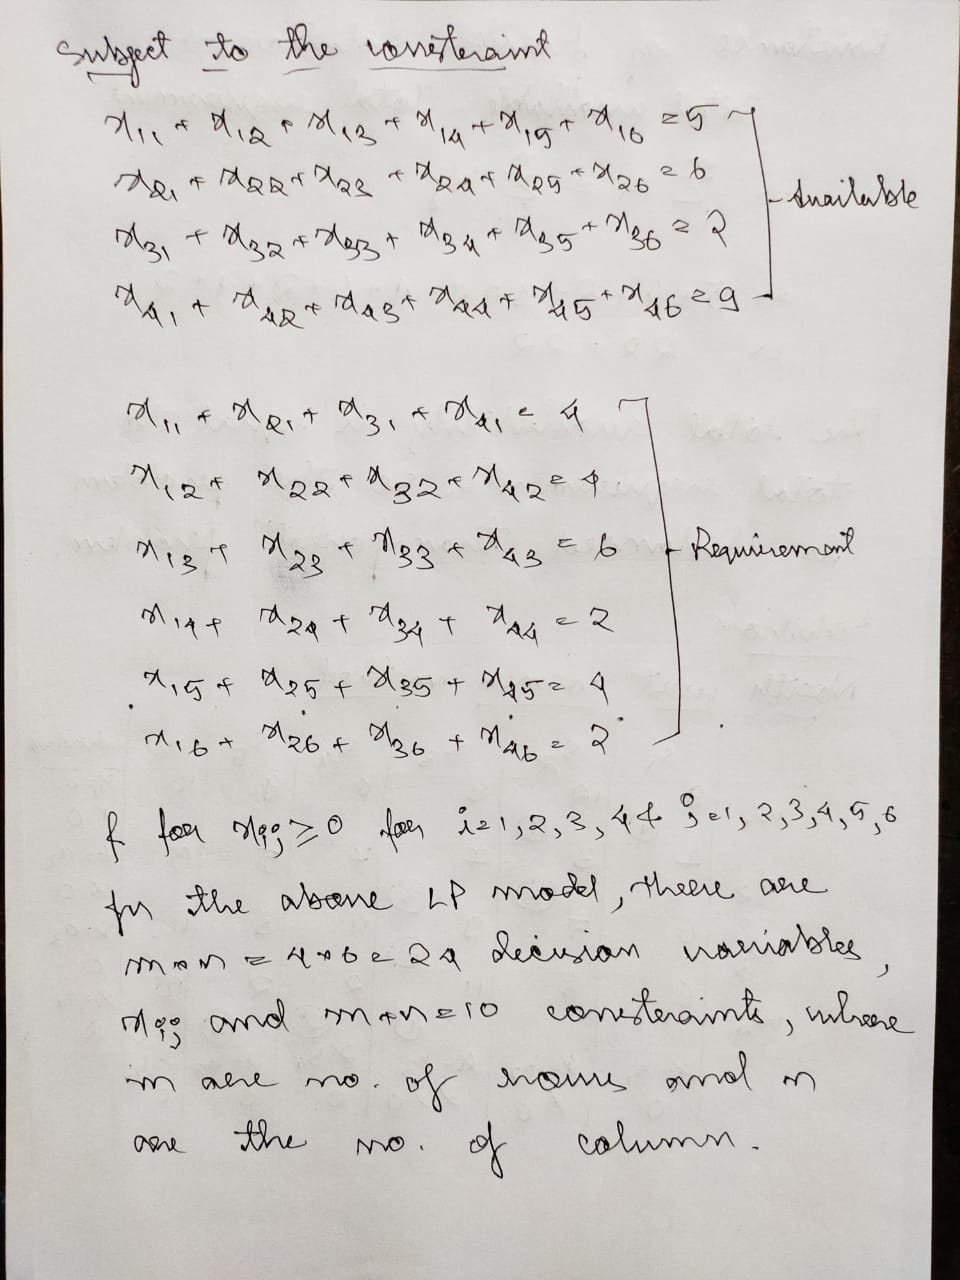 Subject to the constraint
x11 + x12 + x13 + x14 + x15 + x16 = 5
x21 + x22 + x23 + x24 + x25 + x26 = 6
Available
x31 + x32 + x33 + x34 + x35 + x36 = 2
x41 + x42 + x43 + x44 + x45 + x46 = 9
x11 + x21 + x31 + x41 = 4
x12 + x22 + x32 + x42 = 4
x13 + x23 + x33 + x43 = 6
Requirement
x14 + x24 + x34 + x44 = 2
x15 + x25 + x35 + x45 = 4
x16 + x26 + x36 + x46 = 2
& for xij ≥ 0 for i=1,2,3,4 & j=1,2,3,4,5,6
for the above LP model, there are
m×n = 4×6 = 24 decision variables,
xij and m+n=10 constraints, where
m are no. of rows and n
are the no. of column.